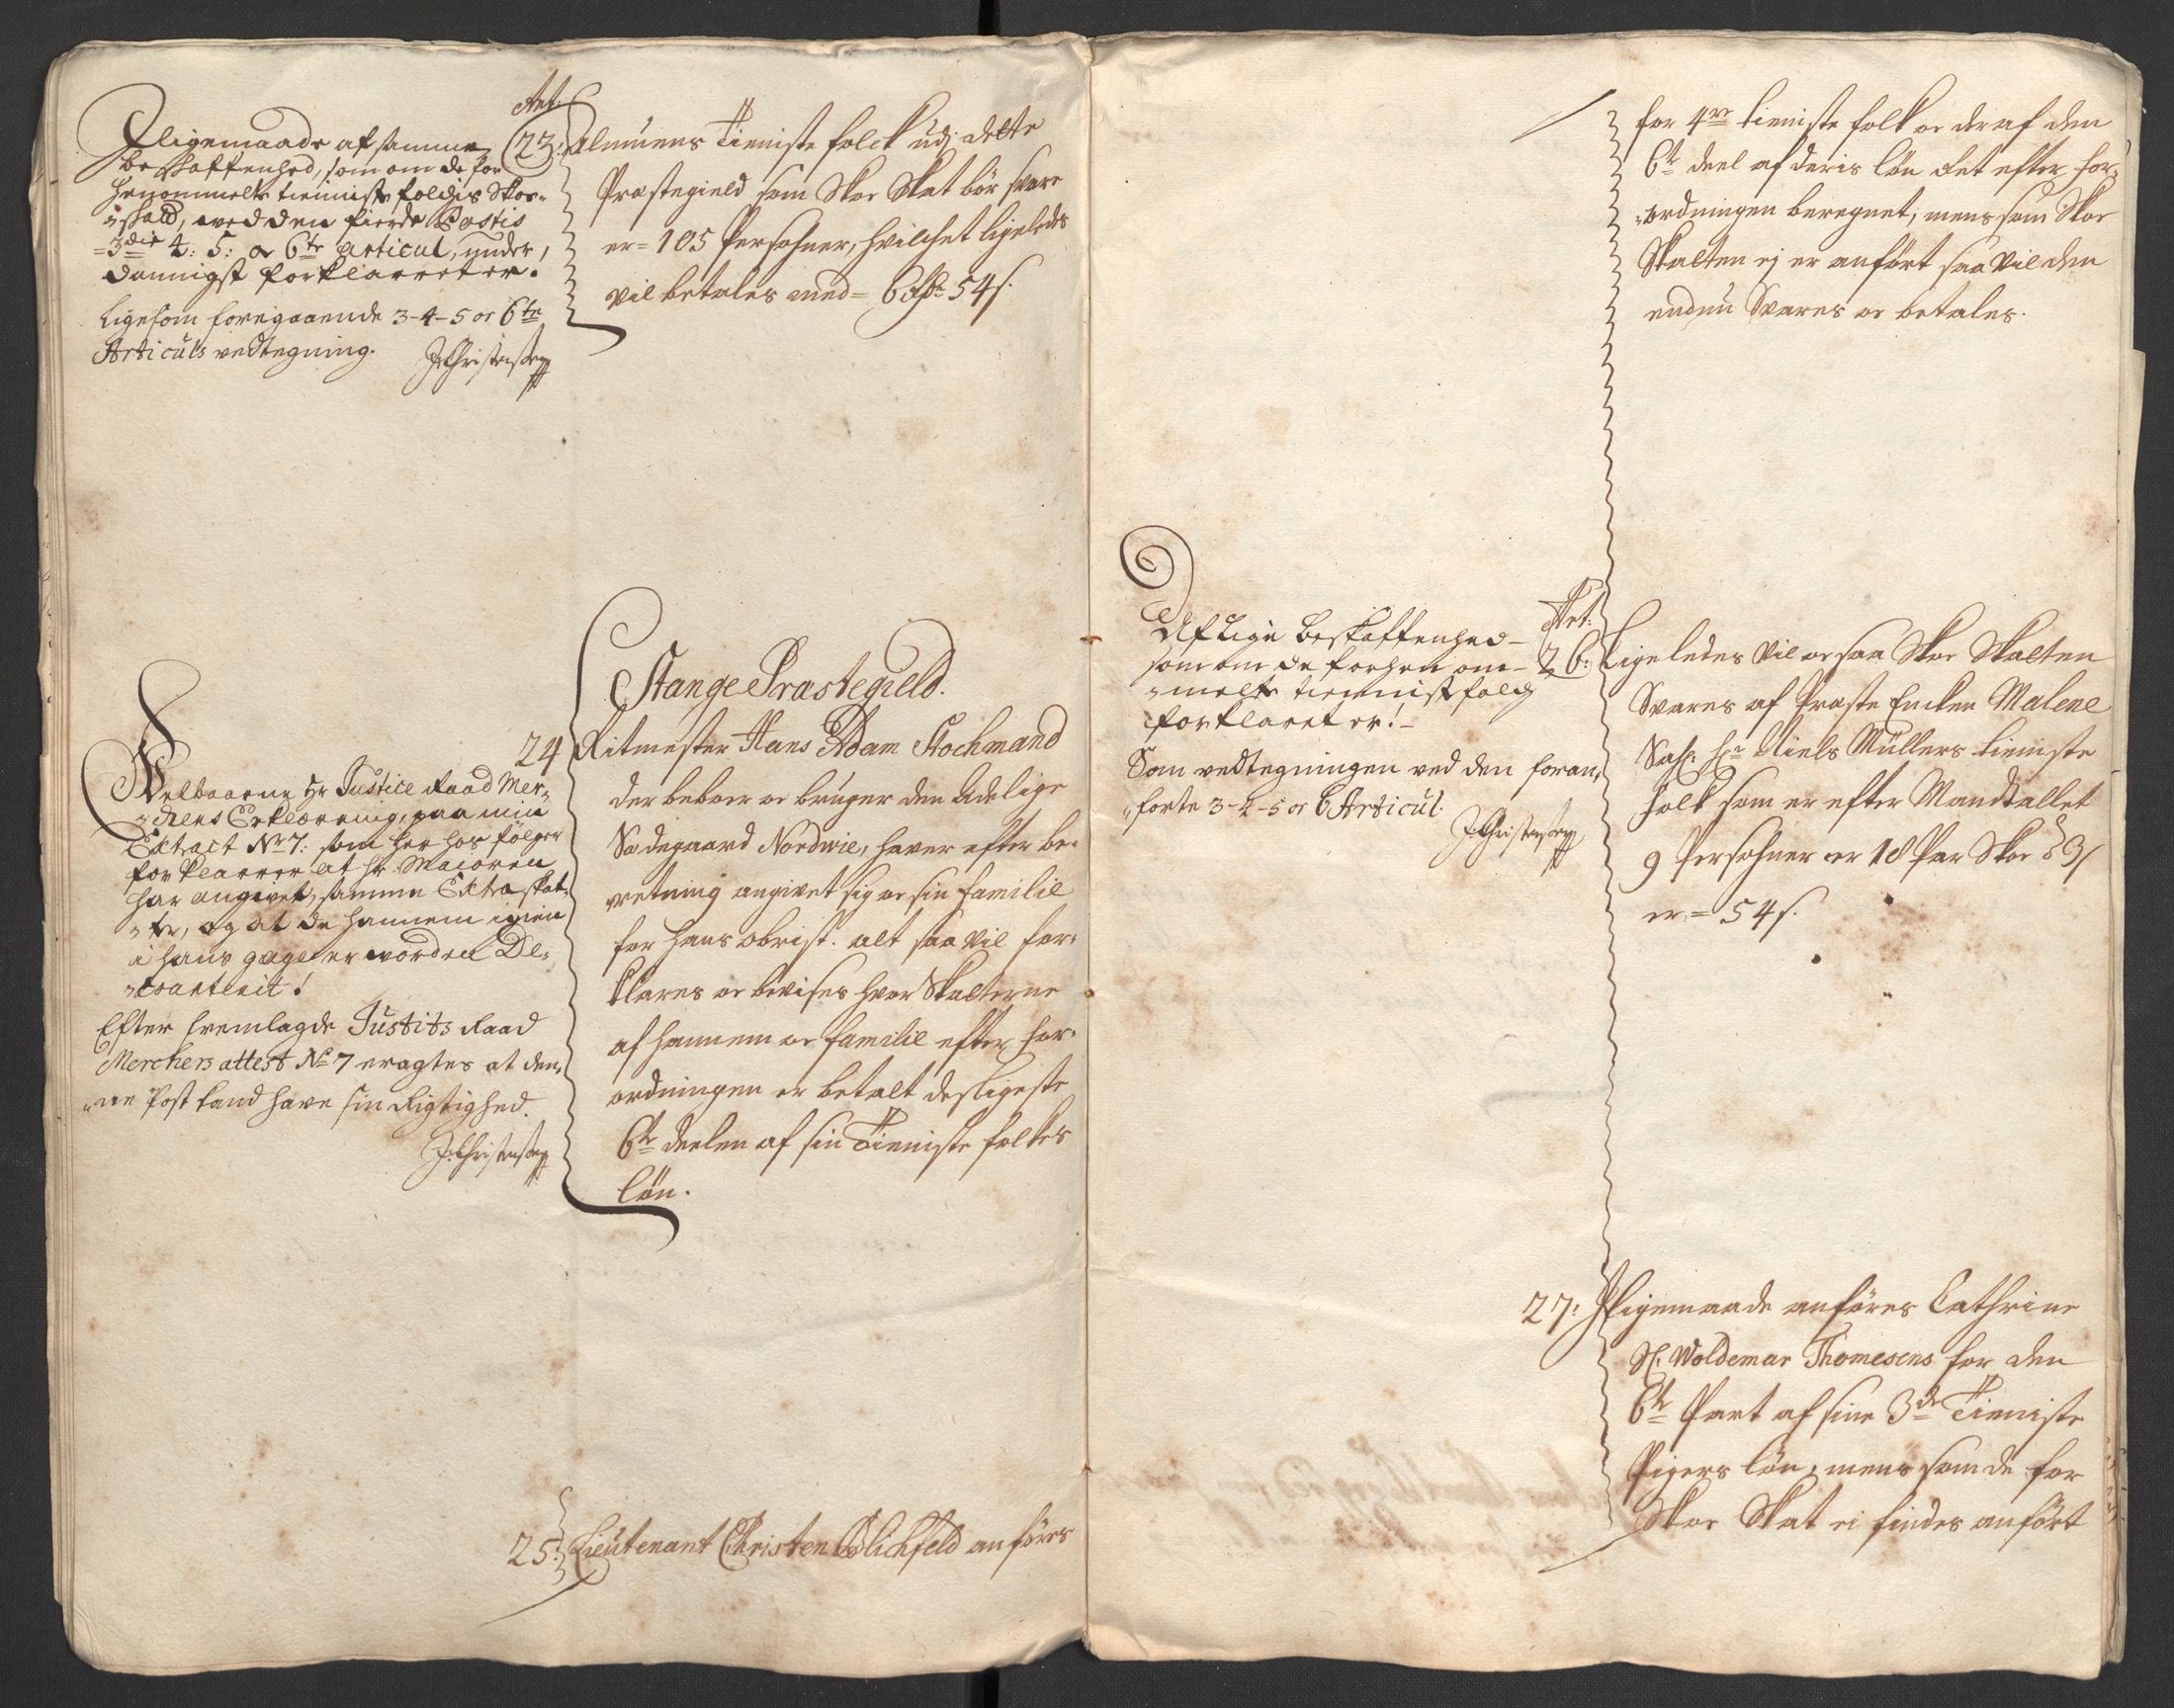 Jligemaade af samme
beskaffenhed, som om de for
henommelte tiennistefolchis Skoe-
schatt, wed den fierde Postis
3die 4: 5: og 6te Articul, under,
dannigst forklarret er.
Ligesom foregaaende 3-4-5 og 6te
Articuls vedtegning.
JChristensen
Ant:
23. Almuens Tieniste folck udj dette
Præstegield som Skoe Skat bör svare
er = 105 Persohner, hvilchet ligeledes
vil betales med = 6 Rdr 54 s.
Stange Præstegield.
24 Ritmester Hans Adam Stochmand
der beboer og bruger den Adelige
Sædegaard Nordwie, haver efter be-
retning angivet sig og sin familie
for hans obrist. alt saa vil for-
klares og bevises hvor Skatterne
af hannem og familie efter for-
ordningen er betalt desligeste
6te deelen af sin Tieniste folkes
lön.
Welbaarne Hr Justice Raad Mer-
chers Erklærning, paa min
Extract No 7: som her hos fölger
forklarrer at hr. Majoren
har angivet, samme Extra skat-
ter, og at de hannem igien
i hans gage er worden De-
courterit!
Efter fremlagde Justits Raad
Merchers attest No 7 eragtes at den-
ne Post kand have sin Rigtighed.
JChristensen
25. Lieutenant Christen Blichfeld anföres
for 4re tieniste folk og deraf den
6te deel af deris lön det efter for-
ordningen beregnet, mens som Skoe
Skatten ej er anfört saa vil den
endnu Svares og betales.
Af lige beskaffenhed
som om de forhen om-
melte tiennistefolch
forklaret er!
Som vedtegningen ved den foran-
forte 3-4-5 og 6 Articul.
JChristensen
Ant:
26: Ligeledes vil og saa Skoe Skatten
Svares af Præste Encken Malene
Sahl: Hr Niels Müllers tieniste
folk som er efter Mandtallet
9 Persohner er 18 Par Skoe á 3 s
er = 54 s.
27: Jligemaade anföres Cathrine
Sl. Woldemar Thomesens for den
6te Part af sine 3de Tieniste
Pigers lön, mens som de for
Skoe Skat ei findes anfört